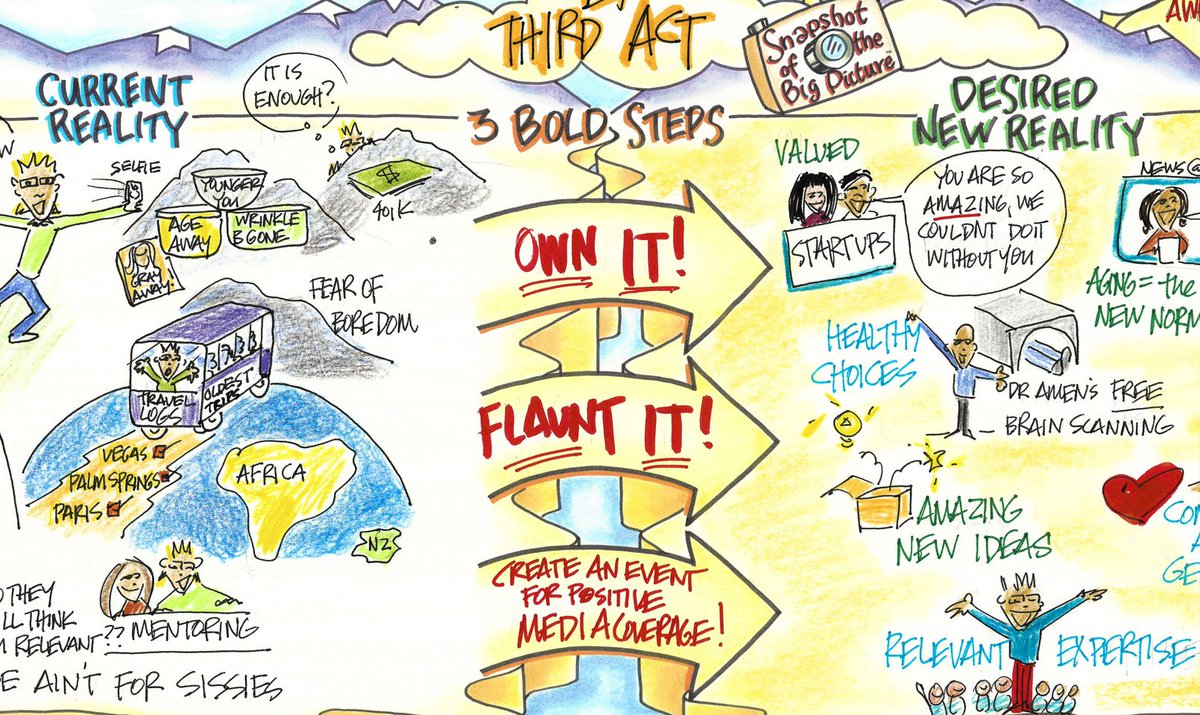 THIRD ACT
Snapshot
of the
Big Picture™
CURRENT
REALITY
IT IS
ENOUGH?
SELFIE
YOUNGER
YOU
AGE
AWAY
WRINKLE
B GONE
GRAY
AWAY!
$
401K
FEAR OF
BOREDOM
TRAVEL
LOGS
OLDEST
TRIPS
VEGAS
PALM SPRINGS
PARIS
AFRICA
NZ
THEY
THINK
RELEVANT??
MENTORING
AIN'T FOR SISSIES
3 BOLD STEPS
OWN IT!
FLAUNT IT!
CREATE AN EVENT
FOR POSITIVE
MEDIA COVERAGE!
DESIRED
NEW REALITY
VALUED
STARTUPS
YOU ARE SO
AMAZING, WE
COULDNT DO IT
WITHOUT YOU
NEWS@
AGING = the
NEW NORM
HEALTHY
CHOICES
DR AMEN'S FREE
BRAIN SCANNING
AMAZING
NEW IDEAS
RELEVANT EXPERTISE